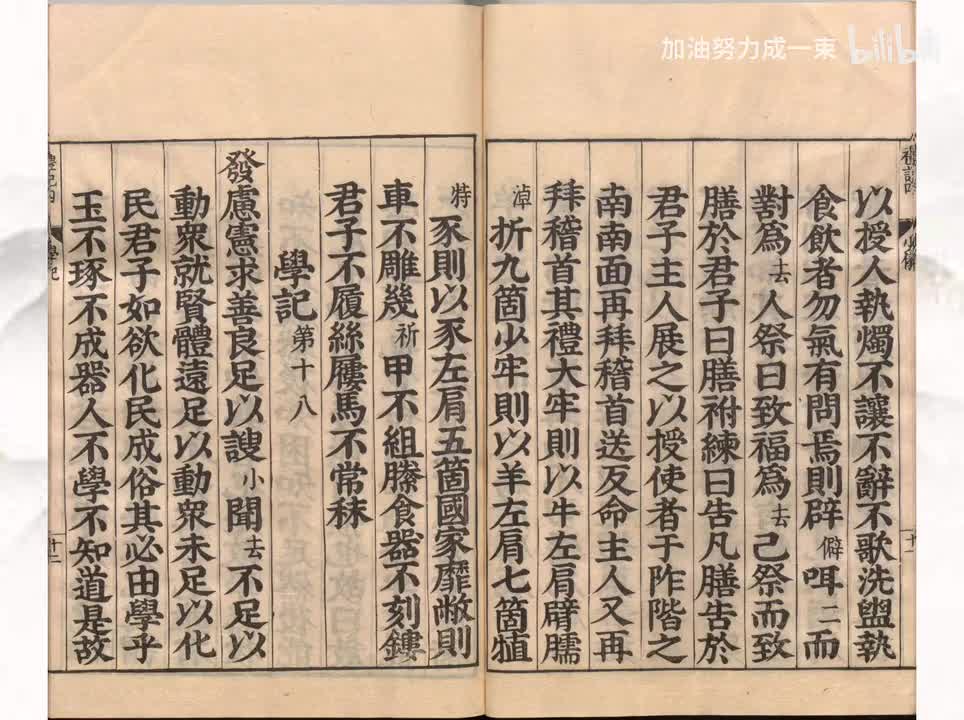 加油努力成一束 bilibili
以授人執燭不讓不辭不歌洗盥執
食飲者勿氣有問焉則辟僻咡二而
對爲去人祭曰致福爲去己祭而致
膳於君子曰膳祔練曰告凡膳告於
君子主人展之以授使者于阼階之
南南面再拜稽首送反命主人又再
拜稽首其禮大牢則以牛左肩臂臑
淖折九箇少牢則以羊左肩七箇犆
特豕則以豕左肩五箇國家靡敝則
車不雕幾祈甲不組縢食器不刻鏤
君子不履絲屨馬不常秣
學記第十八
發慮憲求善良足以謏小聞去不足以
動衆就賢體遠足以動衆未足以化
民君子如欲化民成俗其必由學乎
玉不琢不成器人不學不知道是故
學記
十二